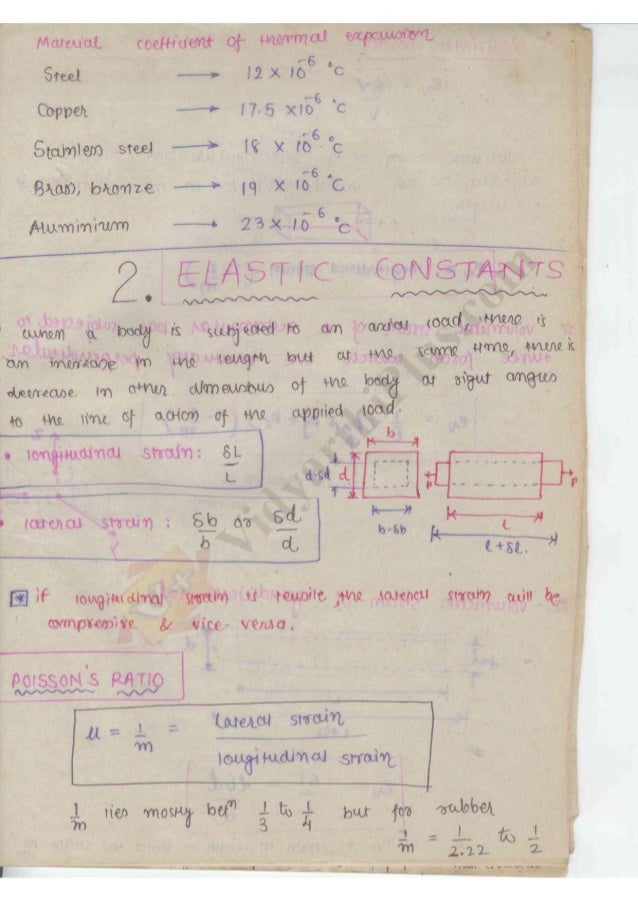 Material coefficient of thermal expansion
Steel → 12 × 10⁻⁶ °C
Copper → 17.5 × 10⁻⁶ °C
Stainless steel → 18 × 10⁻⁶ °C
Brass, bronze → 19 × 10⁻⁶ °C
Aluminium → 23 × 10⁻⁶ °C
2. ELASTIC CONSTANTS
when a body is subjected to an axial load, there is
an increase in the length but at the same time, there is
decrease in other dimensions of the body at right angles
to the line of action of the applied load.
• longitudinal strain: δL/L
b
d-δd d
P P
b-δb
l
l + δl.
• lateral strain: δb/b or δd/d
* if longitudinal strain is tensile, the lateral strain will be
compressive & vice-versa.
POISSON'S RATIO
μ = 1/m = lateral strain / longitudinal strain
1/m lies mostly betⁿ 1/3 to 1/4 but for rubber
1/m = 1/2.22 to 1/2
VidyarthiPlus.com
V+